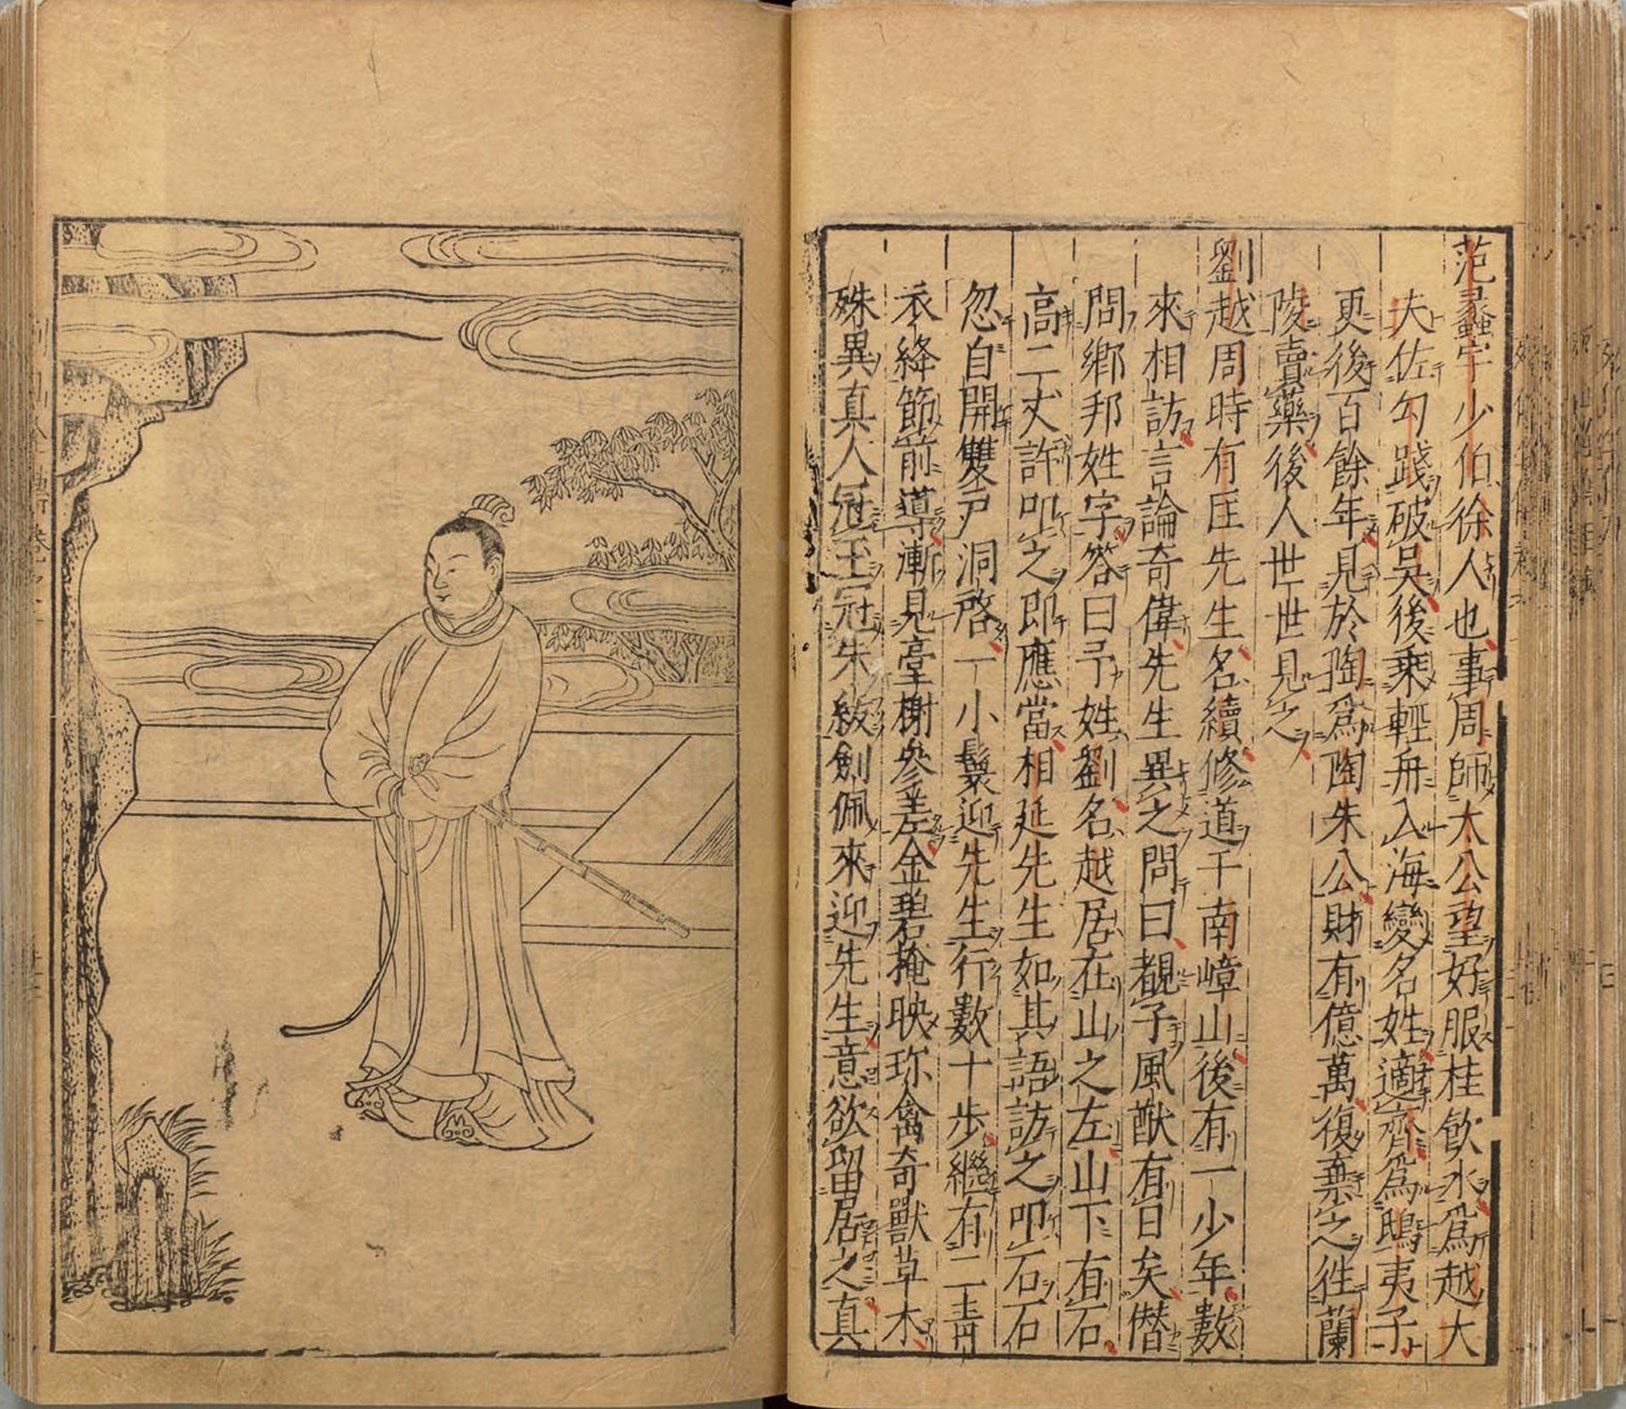 范蠡字少伯徐人也事周師太公望好服桂飲水爲越大
夫佐勾踐破吳後乗輕舟入海變名姓適齊爲鴟夷子
更後百餘年見於陶爲陶朱公財有億萬復棄之往蘭
陵賣藥後人世世見之
劉越周時有匡先生名續修道于南嶂山後有一少年數
來相訪言論奇偉先生異之問曰覩子風猷有日矣僣
問鄉邦姓字答曰予姓劉名越居在山之左山下有石
高二丈許叩之即應當相延先生如其語訪之叩石石
忽自開雙戸洞啓一小鬟迎先生行數十步繼有二青
衣絳節前導漸見臺榭參差金碧掩映珎禽奇獸草木
殊異真人冠玉冠朱紱劍佩來迎先生意欲留居之真